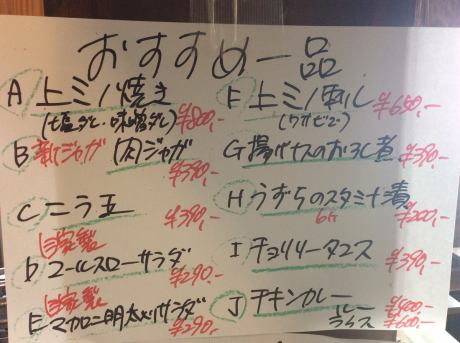 おすすめ一品
A 上ミノ焼き
(塩ダレ・味噌ダレ) ¥800,-
B 新ジャガ (肉)ジャガ
¥390,-
C ニラ玉 ¥390,-
自家製
D コールスローサラダ
¥290,-
自家製
E マカロニ明太サラダ
¥290,-
F 上ミノ刺し ¥650,-
(ワサビ)
G 揚げナスのおろし煮
¥390,-
H うずらのスタミナ漬
6ケ ¥200,-
I チョリソータコス
¥390,-
J チキンカレー
ルー ¥400,-
ライス ¥600,-